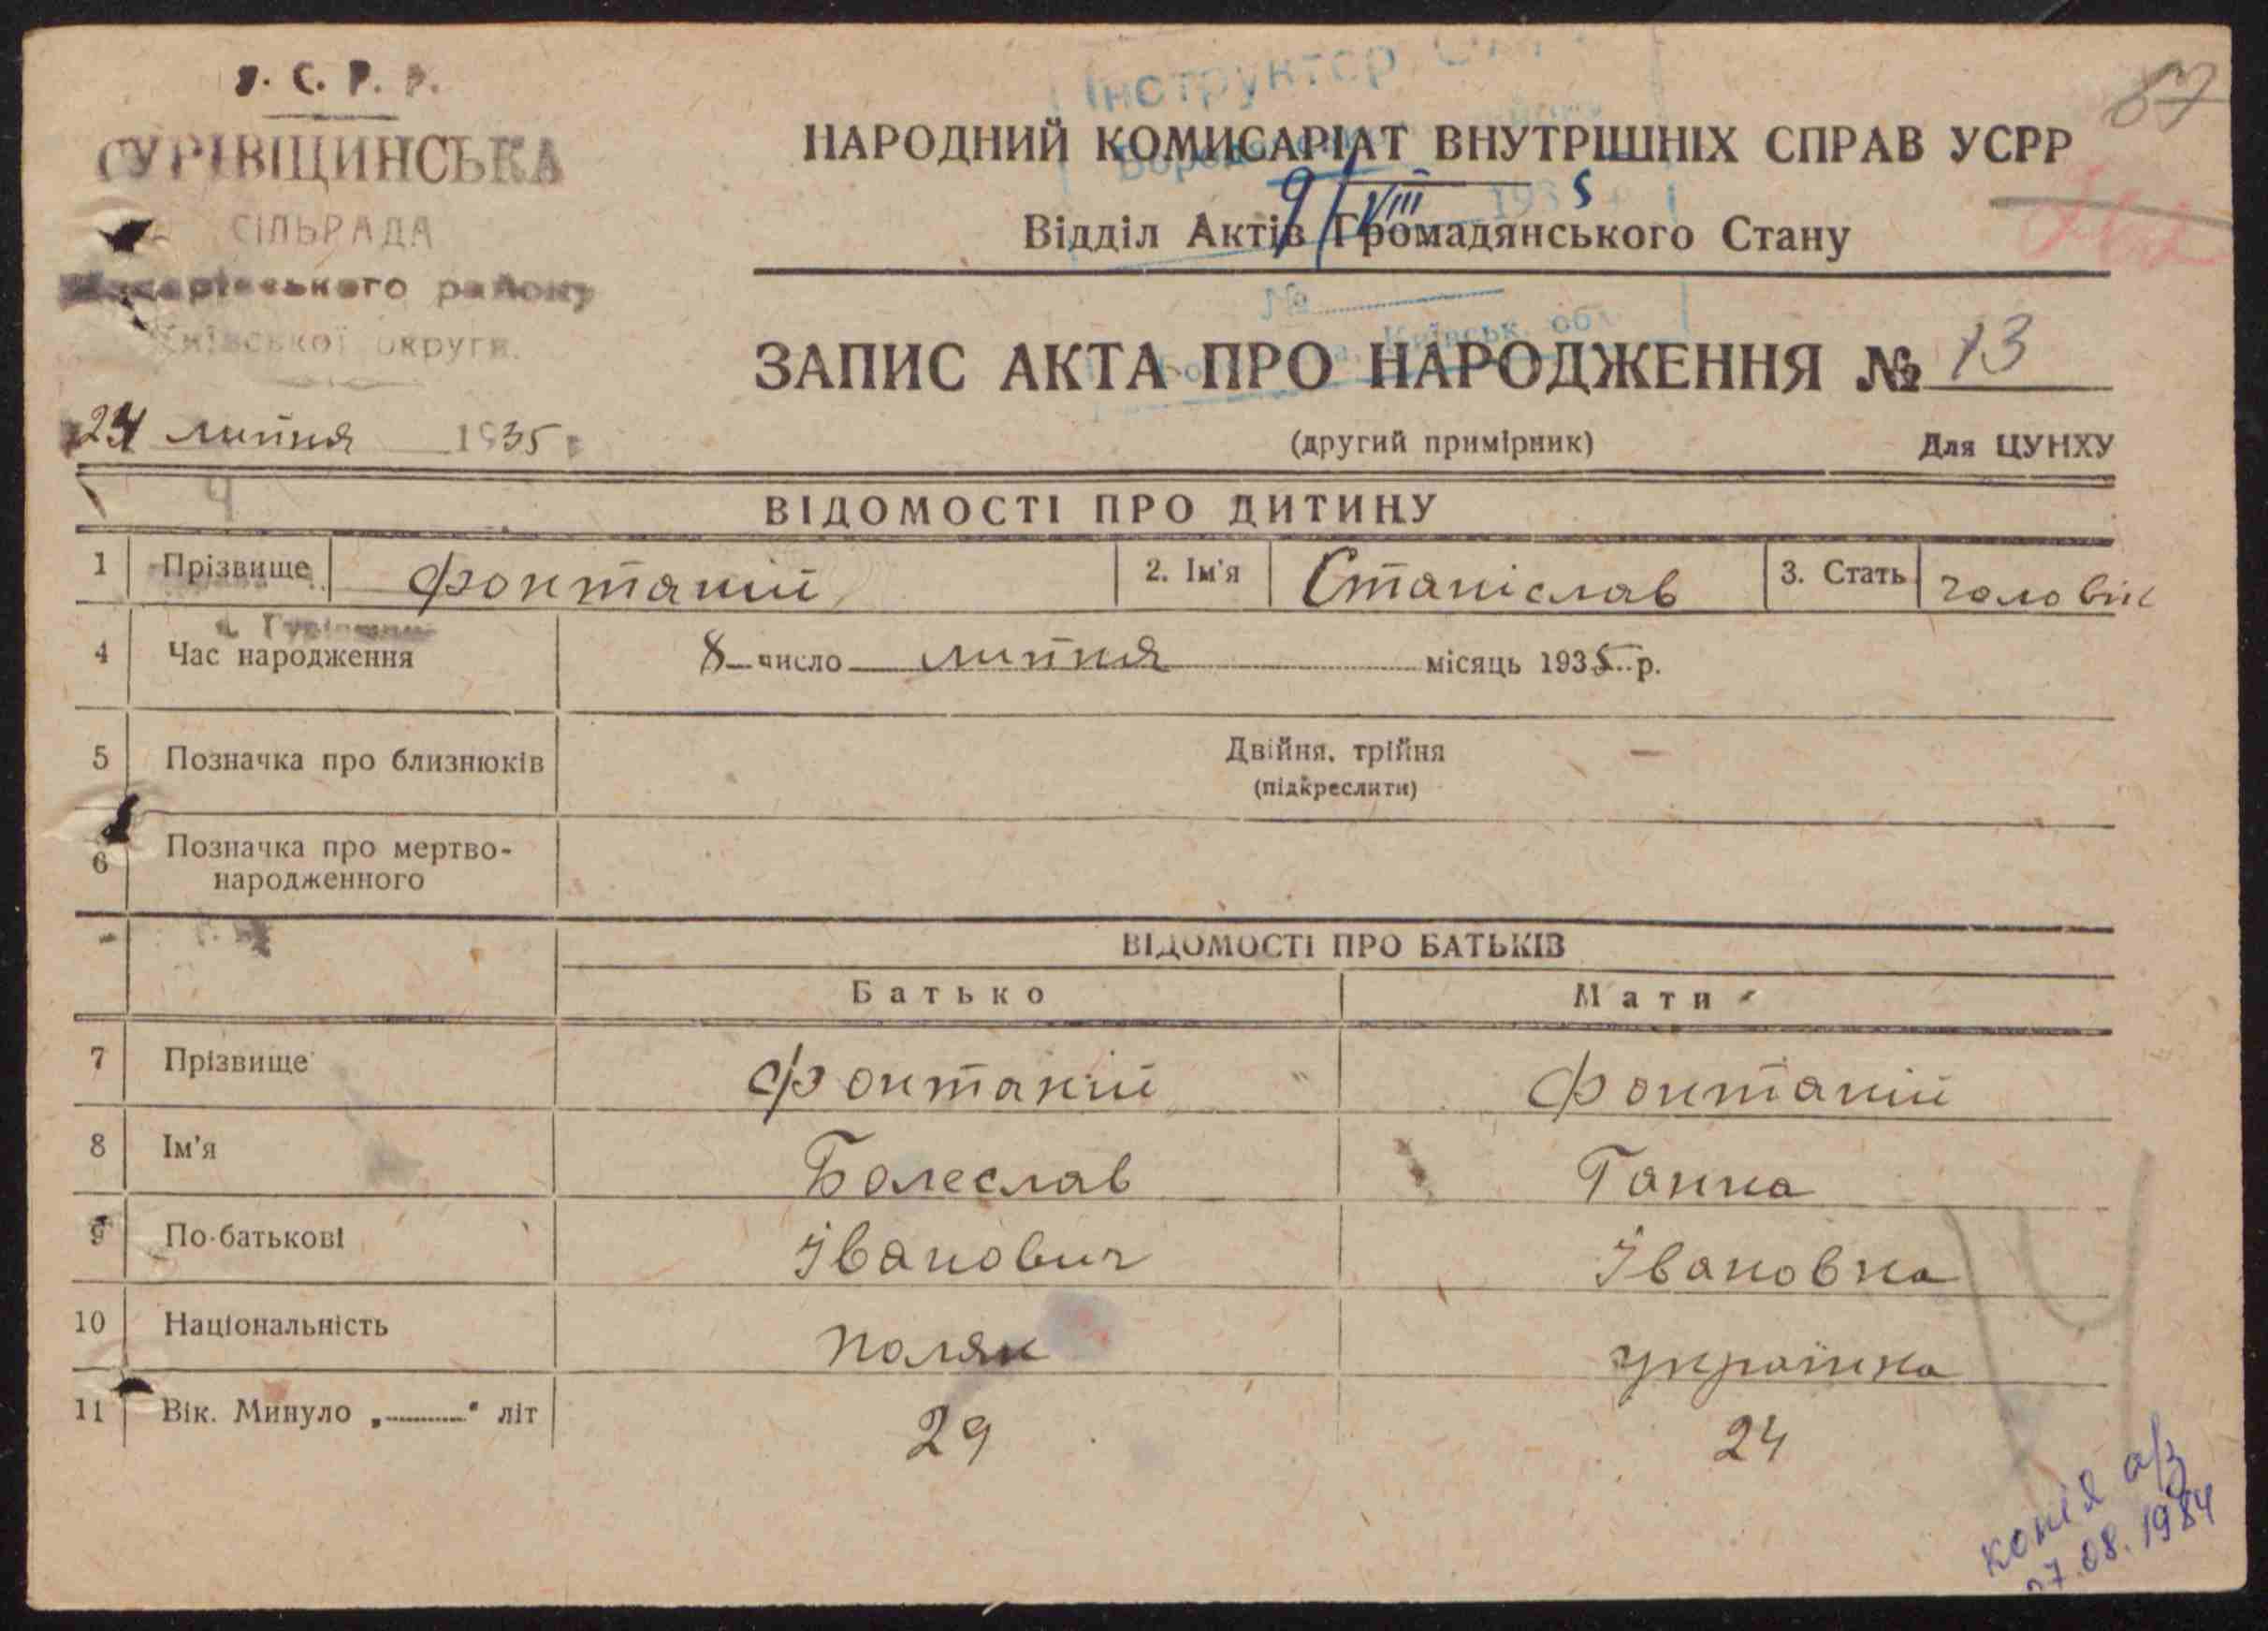 У. С. Р. Р.
ГУРІВЩИНСЬКА
СІЛЬРАДА
Макарівського району
Київської округи.
24 липня 1935
Інструктор
НАРОДНИЙ КОМИСАРІАТ ВНУТРІШНІХ СПРАВ УСРР
9/VIII 1935
Відділ Актів Громадянського Стану
№
Київськ. обл.
ЗАПИС АКТА ПРО НАРОДЖЕННЯ № 13
(другий примірник) Для ЦУНХУ
ВІДОМОСТІ ПРО ДИТИНУ
1 Прізвище Фонтаній 2. Ім'я Станіслав 3. Стать чоловік
4 Час народження 8 число липня місяць 1935 р.
5 Позначка про близнюків Двійня, трійня —
(підкреслити)
6 Позначка про мертво-
народженного
ВІДОМОСТІ ПРО БАТЬКІВ
Батько Мати
7 Прізвище Фонтаній Фонтаній
8 Ім'я Болеслав Ганна
9 По-батькові Іванович Івановна
10 Національність поляк українка
11 Вік. Минуло „ “ літ 29 24
копія а/з
27.08.1984